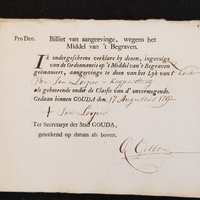 Pro Deo. Billiet van aangeevinge, wegens het
Middel van 't Begraven.
Ik ondergeschreven verklare by deezen, ingevolge
van de Ordonnantie op 't Middel van 't Begraven
geëmaneert, aangeevinge te doen van het Lyk van
Van Jan
als gehoorende onder de Classis van d' onvermogende.
Gedaan binnen GOUDA, den 17 Augustus
Jan
Ter Secretarye der Stad GOUDA,
geteekend op datum als boven.